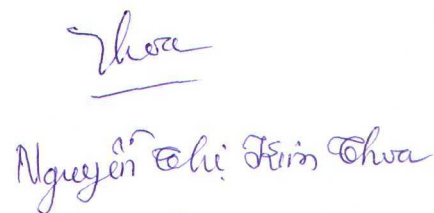 Thoa
Nguyễn Thị Kim Thoa